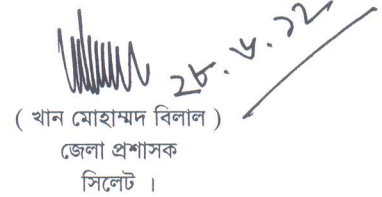 ২৮.৬.১২
( খান মোহাম্মদ বিলাল )
জেলা প্রশাসক
সিলেট ।